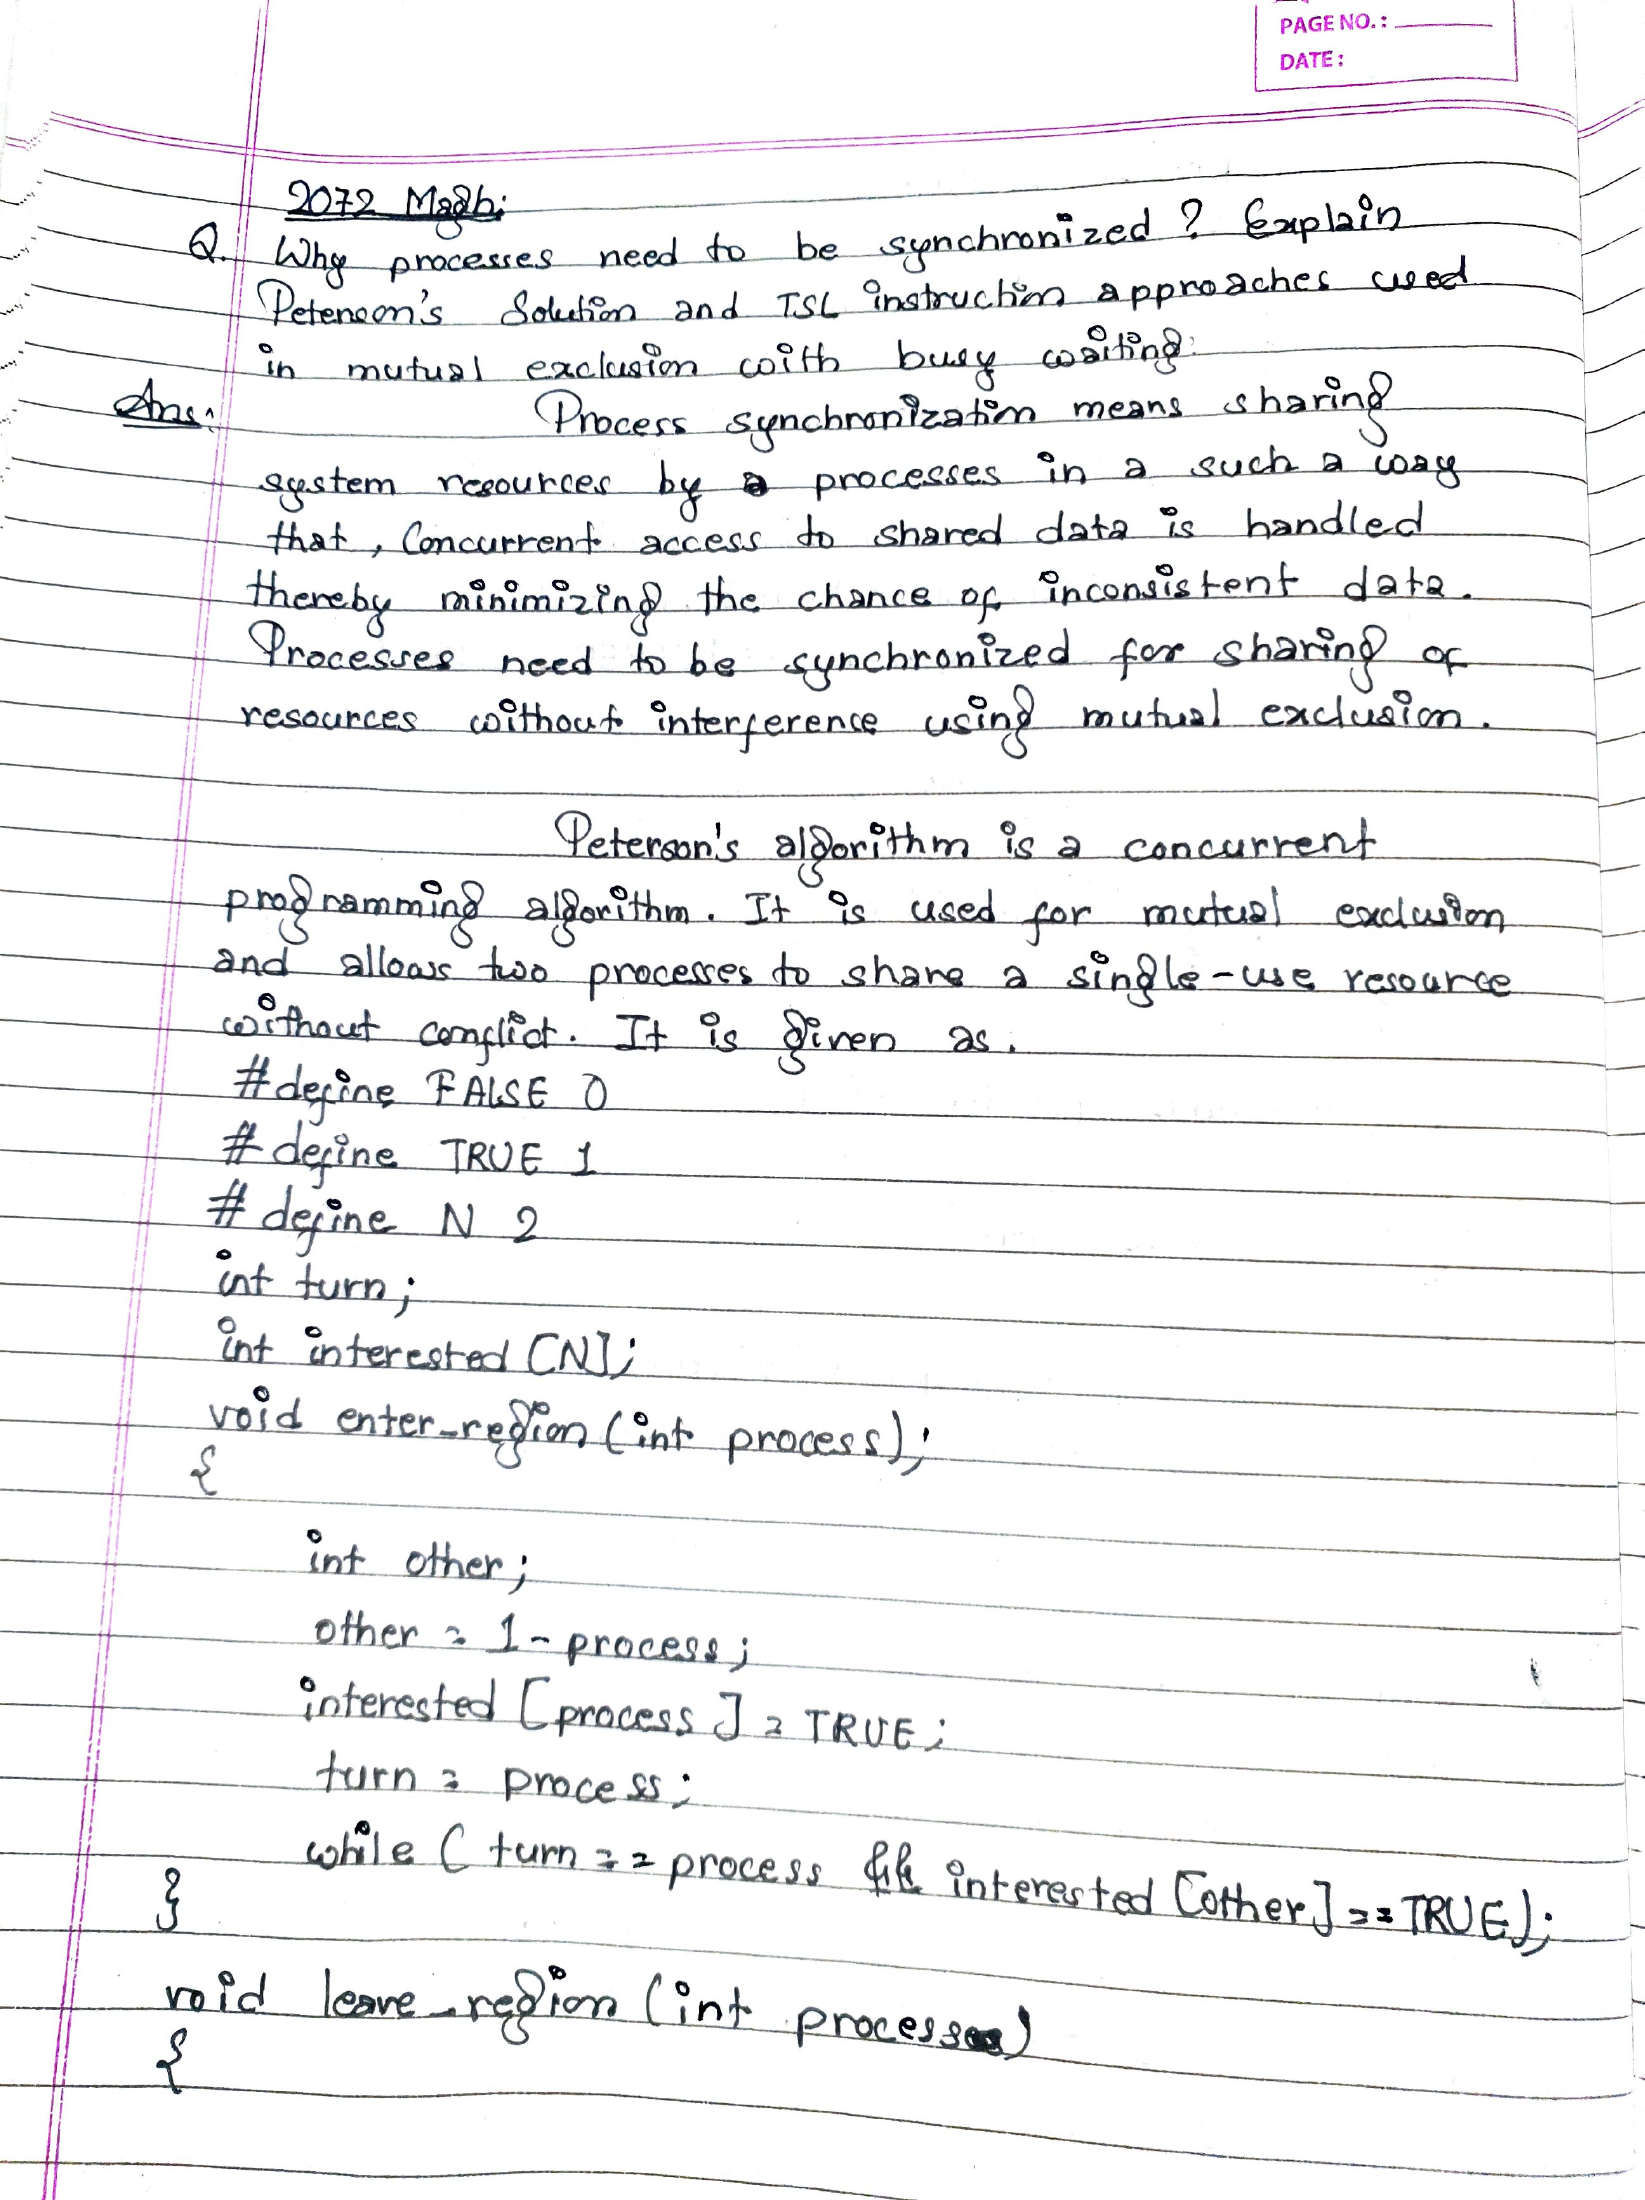 PAGE NO.:
DATE:
2072 Magh:
Q. Why processes need to be synchronized? Explain
Peterson's Solution and TSL instruction approaches used
in mutual exclusion with busy waiting.
Ans: Process synchronization means sharing
system resources by processes in a such a way
that, Concurrent access to shared data is handled
thereby minimizing the chance of inconsistent data.
Processes need to be synchronized for sharing of
resources without interference using mutual exclusion.
Peterson's algorithm is a concurrent
programming algorithm. It is used for mutual exclusion
and allows two processes to share a single-use resource
without conflict. It is given as.
#define FALSE 0
# define TRUE 1
# define N 2
int turn;
int interested [N];
void enter_region (int process);
{
int other;
other = 1 - process;
interested [process] = TRUE;
turn = process;
while ( turn == process && interested [other] == TRUE);
}
void leave_region (int process)
{